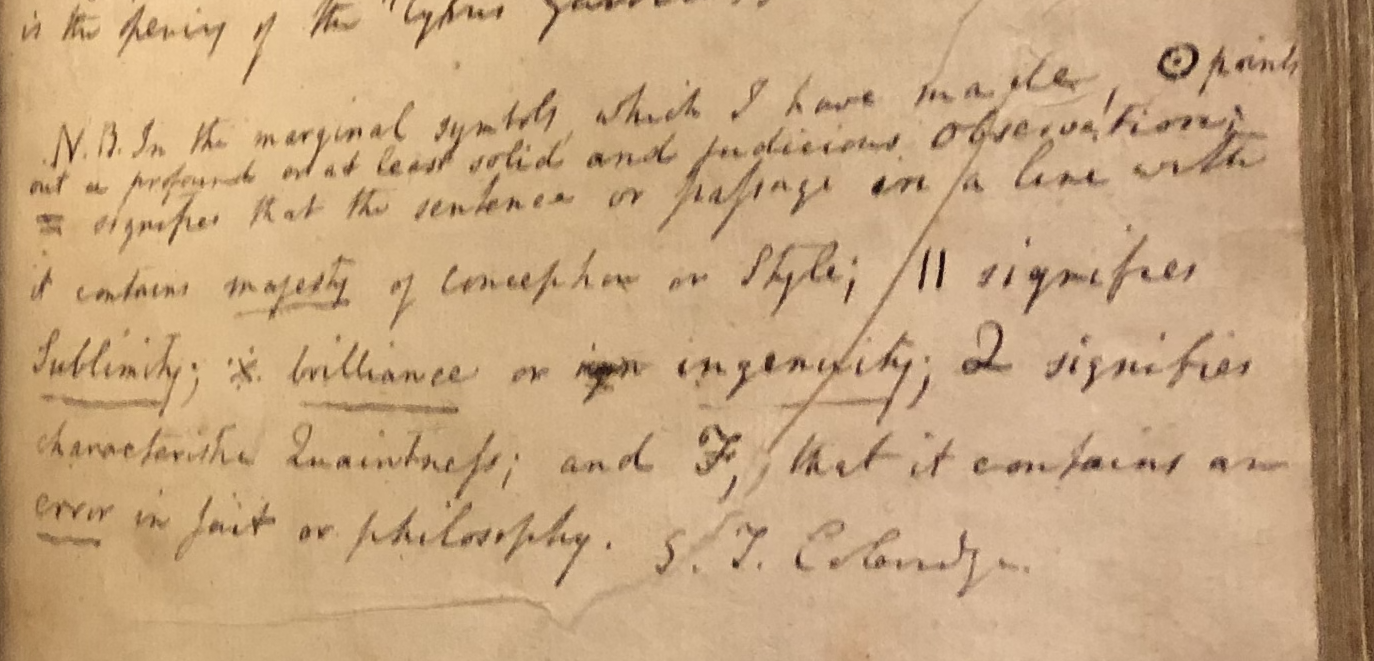 is the opening of the "Cyprus Garden
N.B. In the marginal symbols, which I have made, ⊙ points
out a profound or at least solid and judicious observation;
= signifies that the sentence or passage in a line with
it contains majesty of Conception or Style; || signifies
Sublimity; ⁜ brilliance or ingenuity; Q signifies
characteristic Quaintness; and F, that it contains an
error in fact or philosophy. S. T. Coleridge.